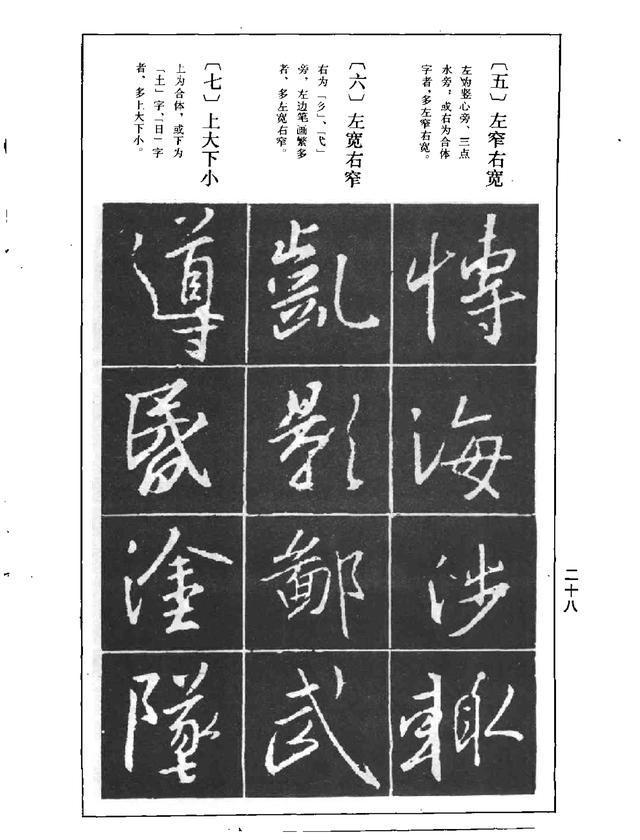 〔五〕左窄右宽
左为竖心旁、三点
水旁;或右为合体
字者,多左窄右宽。
〔六〕左宽右窄
右为「彡」、「弋」
旁,左边笔画繁多
者,多左宽右窄。
〔七〕上大下小
上为合体,或下为
「土」字、「日」字
者,多上大下小。
海
涉
輙
凱
影
鄙
武
導
塗
墜
二十八